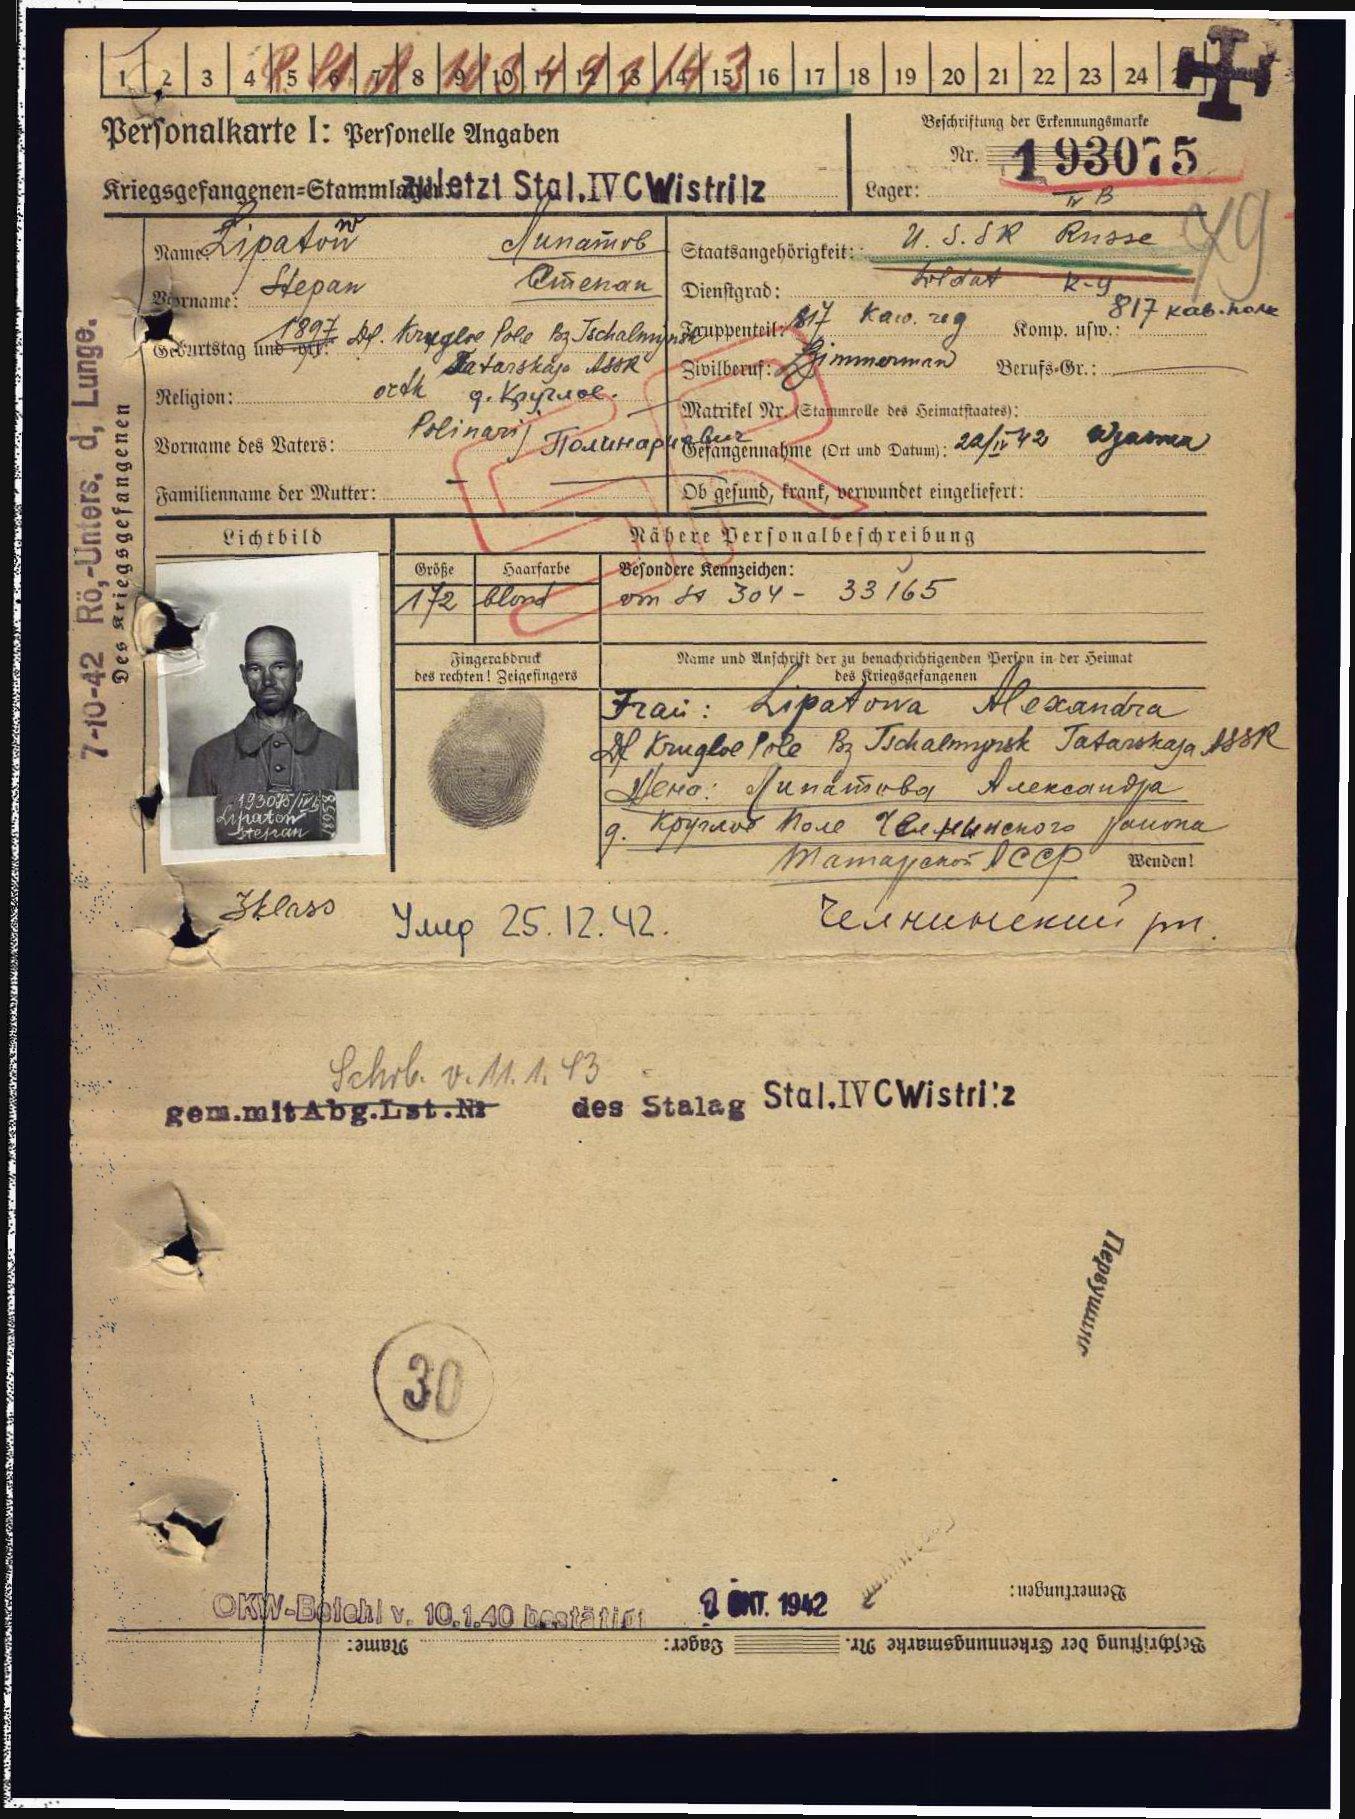 1 2 3 4 5 6 7 8 9 10 11 12 13 14 15 16 17 18 19 20 21 22 23 24
Personalkarte I: Personelle Angaben
Beschriftung der Erkennungsmarke
Nr. 193075
Kriegsgefangenen=Stammlager: zuletzt Stal. IV C Wistritz
Lager: IV B
49
Name: Lipatow Липатов
Vorname: Stepan Степан
Geburtstag und -ort: 1897 Df. Krugloe Pole Bz Tschalmynsk
Tatarskaja ASSR
Religion: orth д. Круглое.
Vorname des Vaters: Polinarij Полинариевич
Familienname der Mutter: –
Staatsangehörigkeit: U.S.S.R Russe
Dienstgrad: Soldat К-ц
Truppenteil: 817 Kaw. reg Komp. usw.: 817 кав. полк
Zivilberuf: Zimmerman Berufs-Gr.:
Matrikel Nr. (Stammrolle des Heimatstaates):
Gefangennahme (Ort und Datum): 22/IV 42 Wjasma
Ob gesund, krank, verwundet eingeliefert:
7-10-42 Rö.-Unters. d, Lunge.
Des Kriegsgefangenen
Lichtbild
Nähere Personalbeschreibung
Größe Haarfarbe Besondere Kennzeichen:
172 blond von St 304 - 33165
Fingerabdruck
des rechten! Zeigefingers
Name und Anschrift der zu benachrichtigenden Person in der Heimat
des Kriegsgefangenen
Frau: Lipatowa Alexandra
Df Krugloe Pole Bz Tschalmynsk Tatarskaja ASSR
Жена: Липатова Александра
д. Круглое Поле Челнынского района
Татарской АССР Wenden!
193075/IV B
Lipatow
Stepan
Умер 25.12.42.
Челнинский рн.
Schrb. v. 11.1.43
gem.mit Abg.Lst.Nr des Stalag Stal. IV C Wistritz
Первушинг
30
OKW-Befehl v. 10.1.40 bestätigt
OKT. 1942
Bemerkungen:
Beschriftung der Erkennungsmarke Nr. Lager: Name: